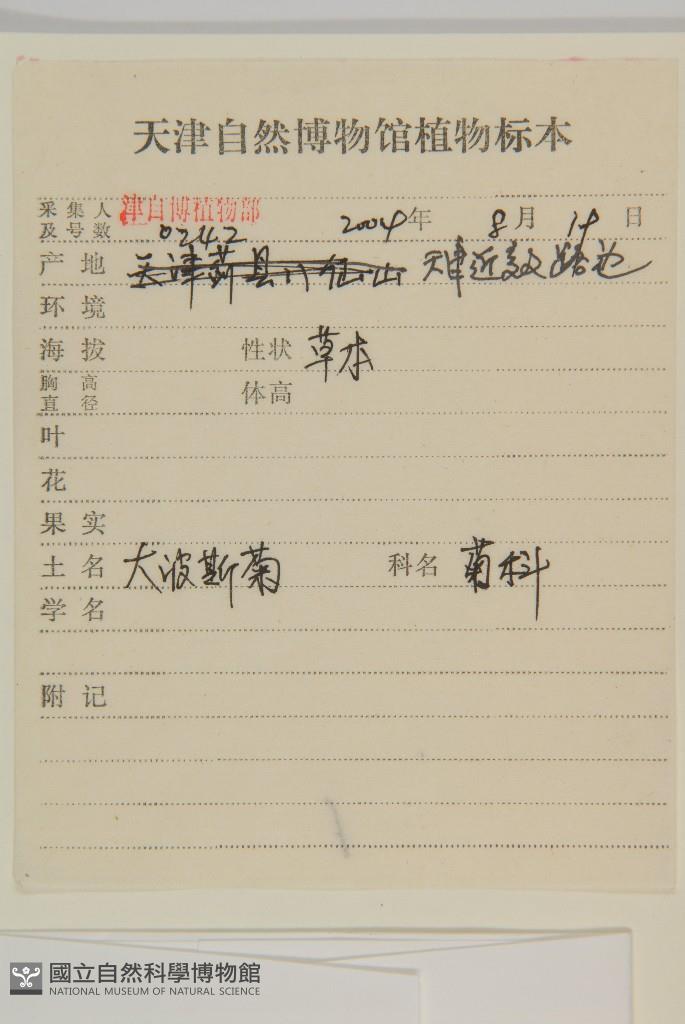 天津自然博物馆植物标本
采集人及号数 津自博植物部 0242 2004年 8月 19日
产地 天津蓟县八仙山 天津近郊路边
环境
海拔 性状 草本
胸高直径 体高
叶
花
果实
土名 大波斯菊 科名 菊科
学名
附记
國立自然科學博物館
NATIONAL MUSEUM OF NATURAL SCIENCE